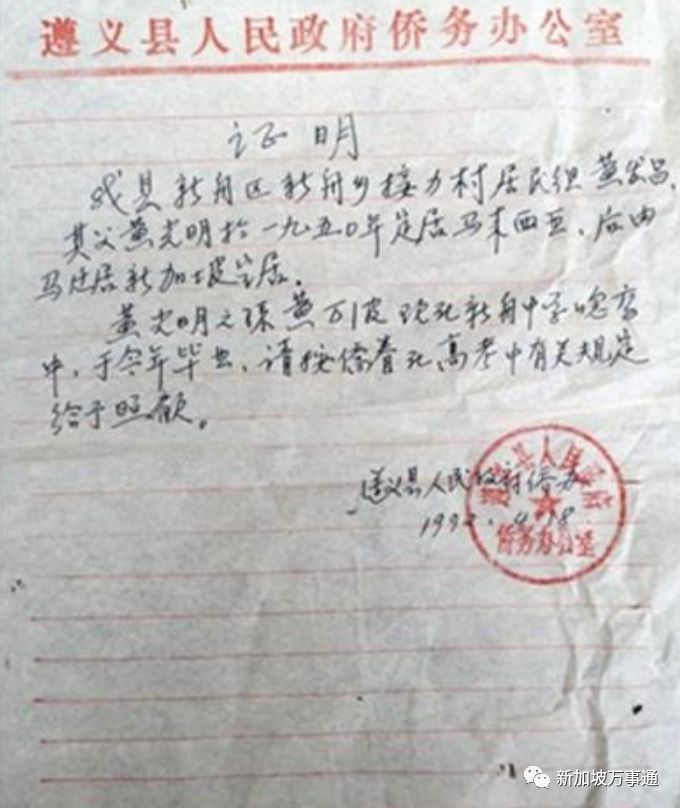 遵义县人民政府侨务办公室
证明
我县新舟区新舟乡接力村居民组黄发昌
其父黄光明於一九五0年定居马来西亚、后由
马迁居新加坡定居。
黄光明之孫黄万波现在新舟中学唸高
中,于今年毕业、请按侨眷在高考中有关规定
给于照顾。
遵义县人民政府侨办
199 . 4.18
遵义县人民政府
侨务办公室
新加坡万事通